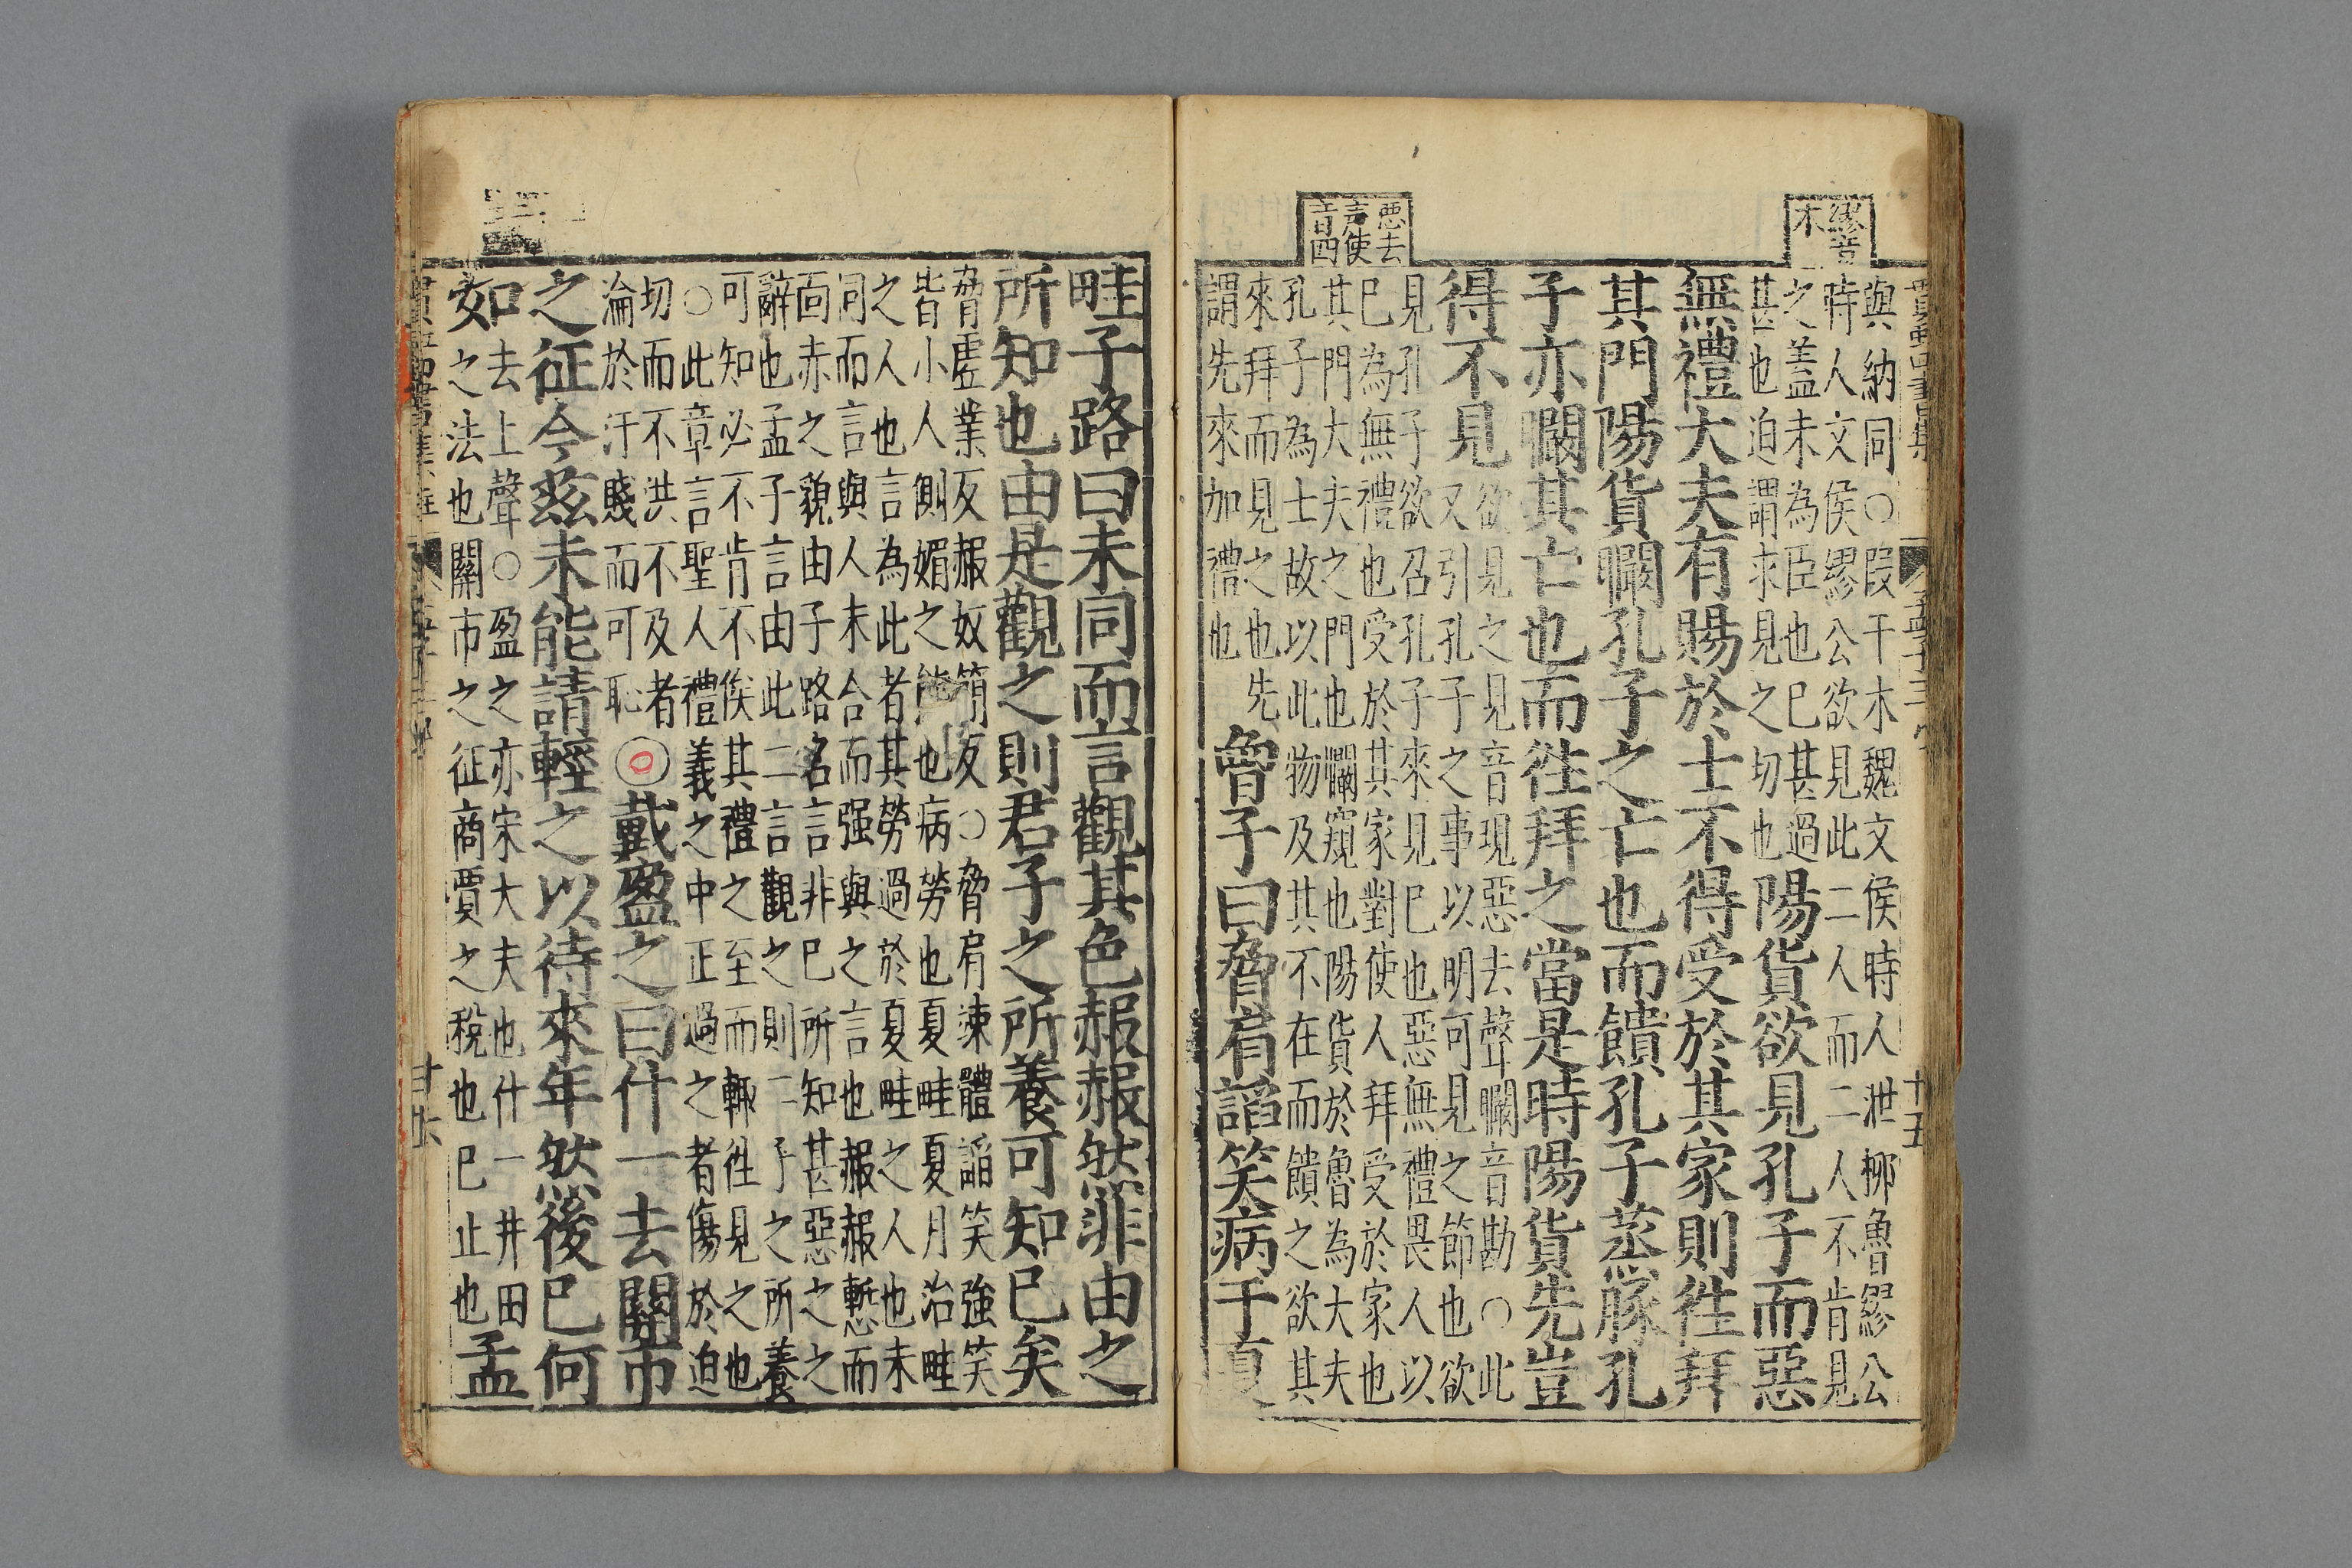 繆音
木
惡去
聲使
音四
與納同○段干木魏文侯時人泄柳魯繆公
時人文侯繆公欲見此二人而二人不肯見
之盖未為臣也已甚過
甚也迫謂求見之切也
陽貨欲見孔子而惡
無禮大夫有賜於士不得受於其家則徃拜
其門陽貨矙孔子之亡也而饋孔子蒸豚孔
子亦矙其亡也而徃拜之當是時陽貨先豈
得不見
欲見之見音現惡去聲矙音勘○此
又引孔子之事以明可見之節也欲
見孔子欲召孔子來見已也惡無禮畏人以
已為無禮也受於其家對使人拜受於家也
其門大夫之門也矙窺也陽貨於魯為大夫
孔子為士故以此物及其不在而饋之欲其
來拜而見之也先
謂先來加禮也
曾子曰脅肩諂笑病于夏
十五
畦子路曰未同而言觀其色赧赧然非由之
所知也由是觀之則君子之所養可知已矣
脅虛業反赧奴簡反○脅肩竦體諂笑強笑
皆小人側媚之態也病勞也夏畦夏月治畦
之人也言為此者其勞過於夏畦之人也未
同而言與人未合而强與之言也赧赧慙而
面赤之貌由子路名言非已所知甚惡之之
辭也孟子言由此二言觀之則二子之所養
可知必不肯不俟其禮之至而輒徃見之也
○此章言聖人禮義之中正過之者傷於迫
切而不洪不及者
淪於汙賤而可恥
◎戴盈之曰什一去關市
之征今兹未能請輕之以待來年然後已何
如
去上聲○盈之亦宋大夫也什一井田
之法也關市之征商賈之稅也已止也
孟